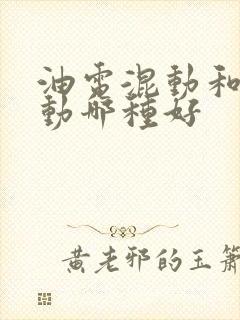 油電混動和
動哪種好
黃老邪的玉簫